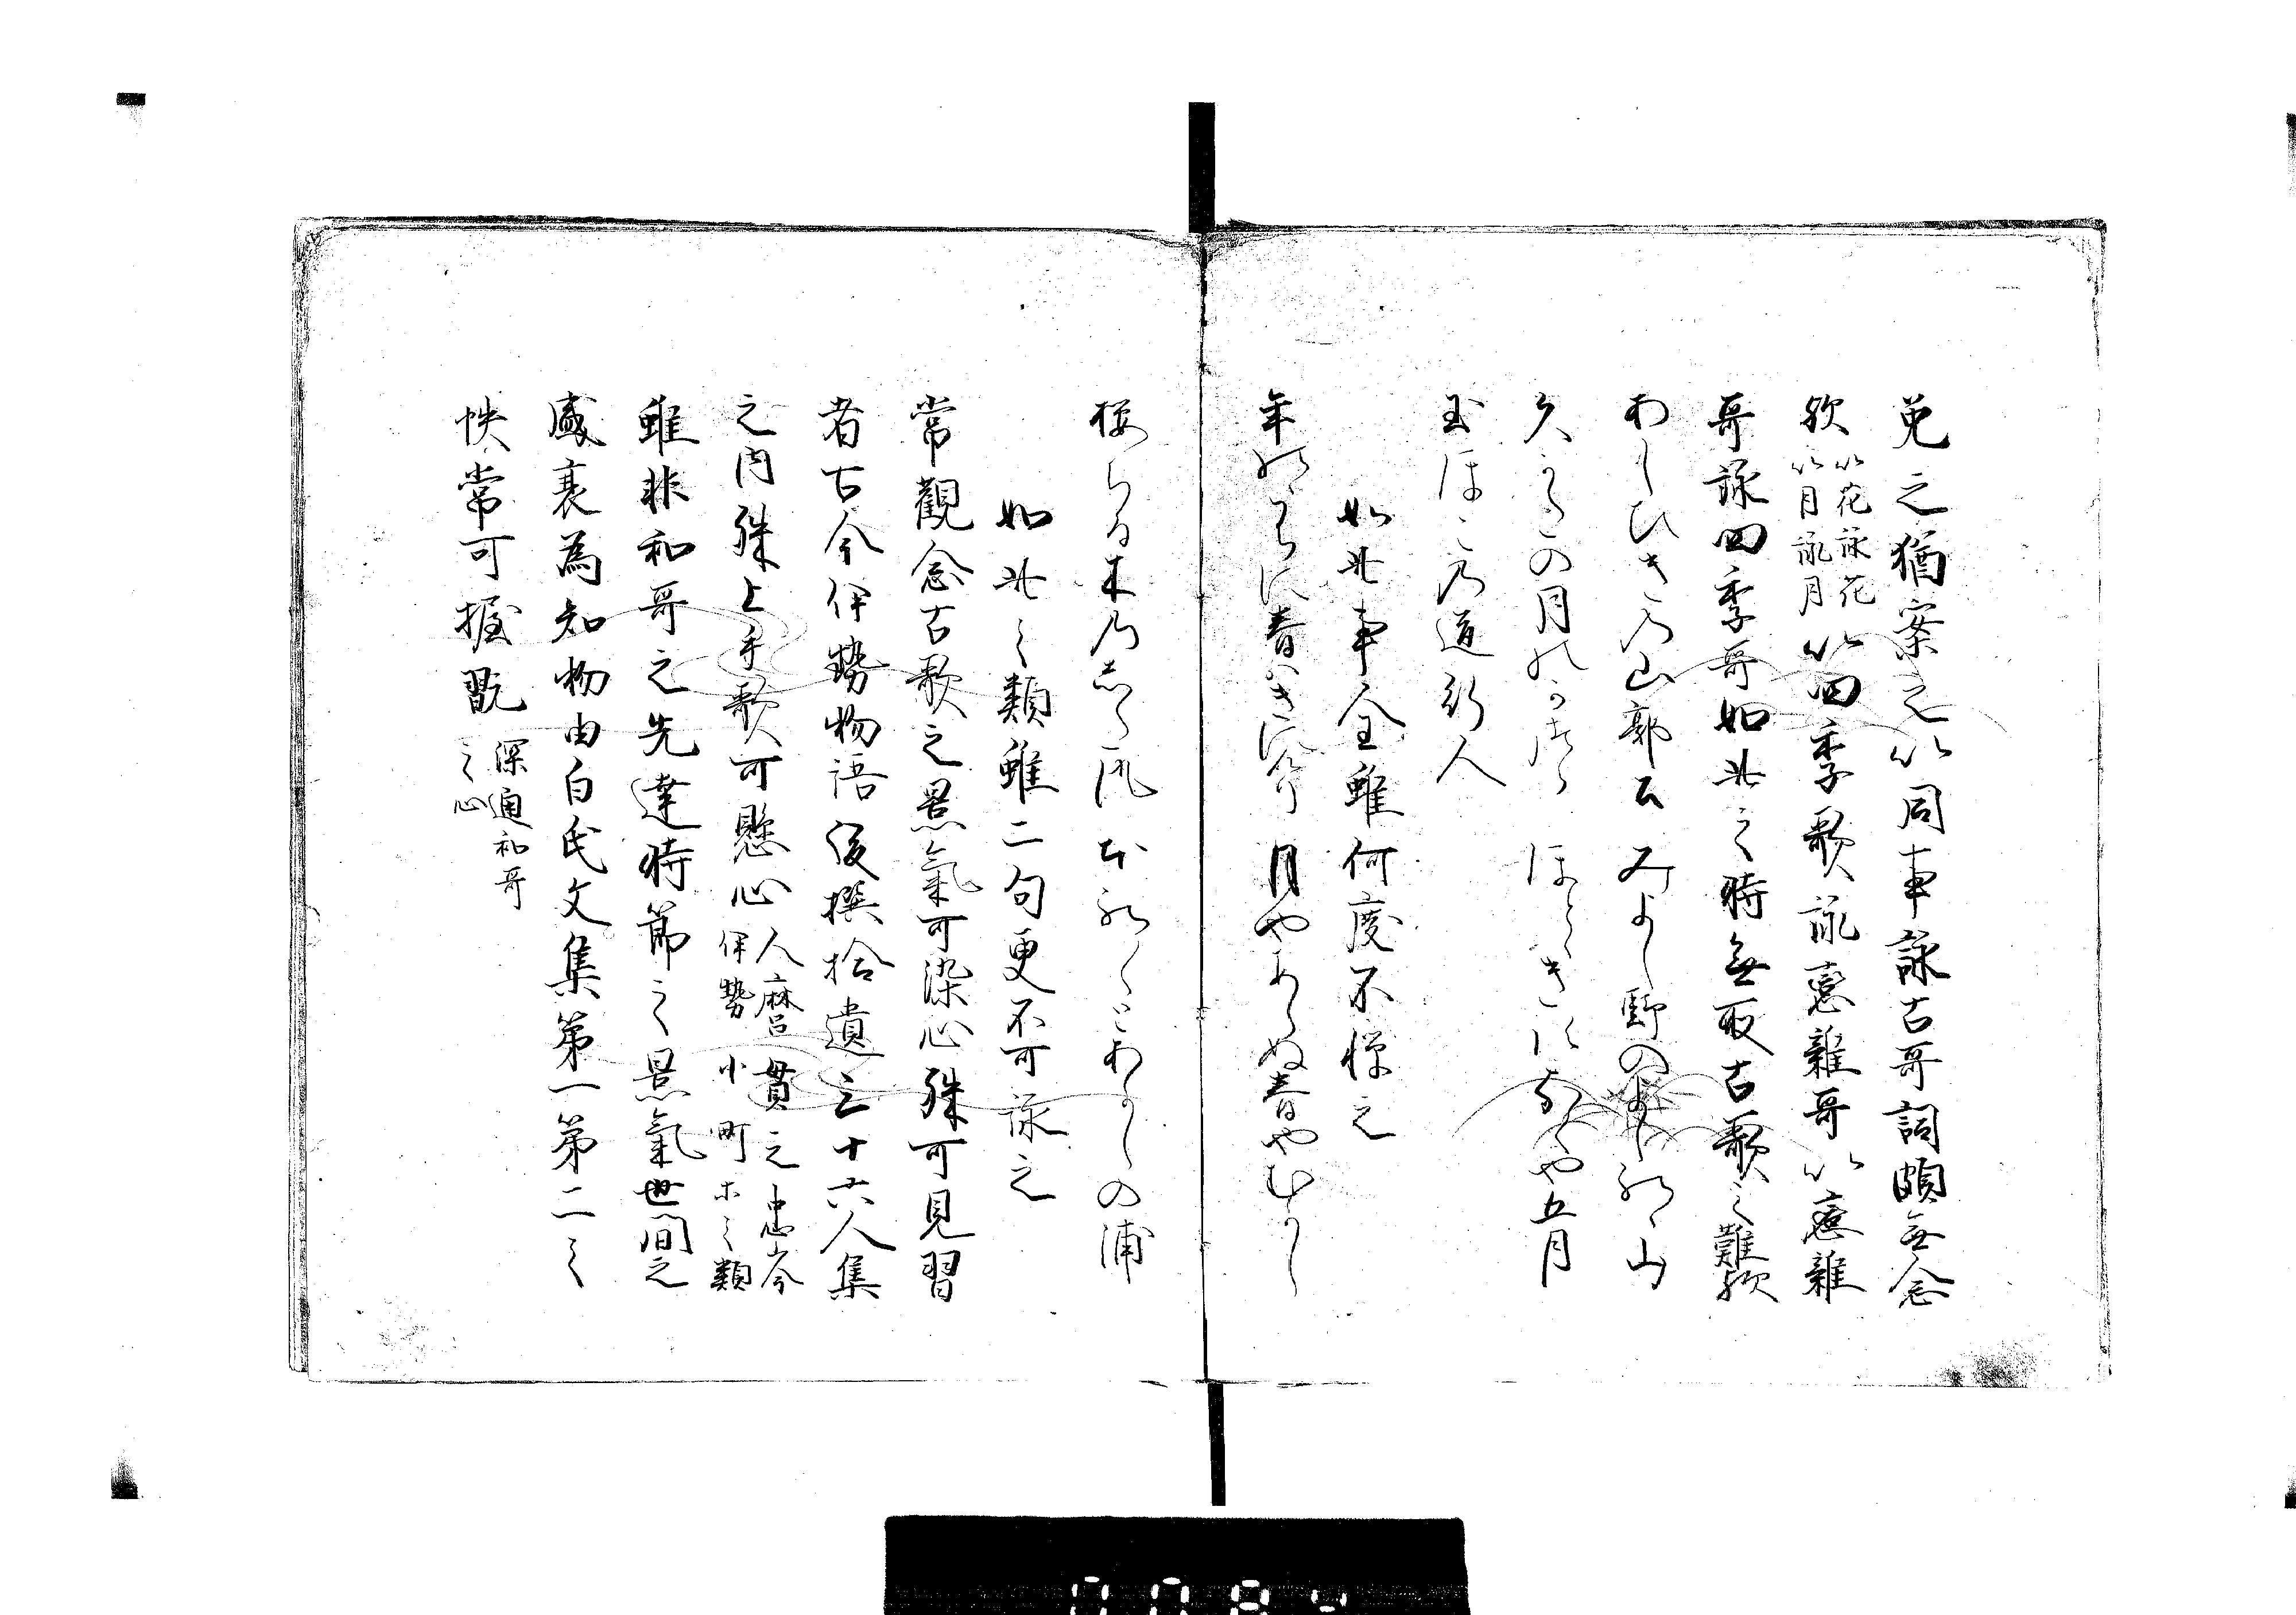 免之猶案之以同事詠古哥詞頗無念
歟以花詠花以月詠月以四季歌詠恋雑哥以恋雑
哥詠四季哥如此之時無取古歌之難歟
あしひきの山郭公みよし野のよしのゝ山
久かたの月のかつらほとゝきすなくや五月
玉ほこの道行人
如此事全雖何度不憚之
年の内に春はきにけり月やあらぬ春やむかし
桜ちる木のした風ほの〳〵とあかしの浦
如此之類雖二句更不可詠之
常觀念古歌之景氣可染心殊可見習
者古今伊勢物語後撰拾遺三十六人集
之内殊上手歌可懸心人麿貫之忠岑伊勢小町等之類
雖非和哥之先達時節之景氣世間之
盛衰為知物由白氏文集第一第二之
帙常可握翫深通和哥之心